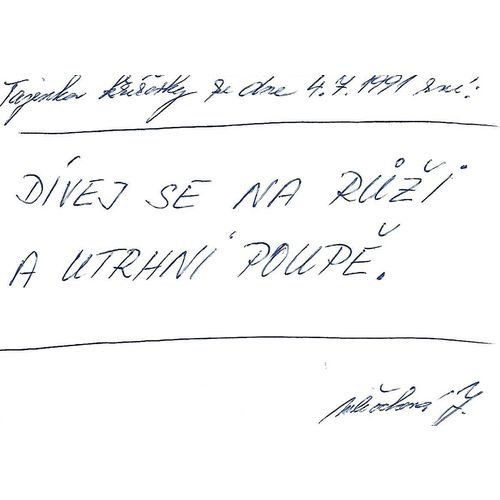 Tajenka křížovky ze dne 4.7.1991 zní:
DÍVEJ SE NA RŮŽI
A UTRHNI POUPĚ.
J.